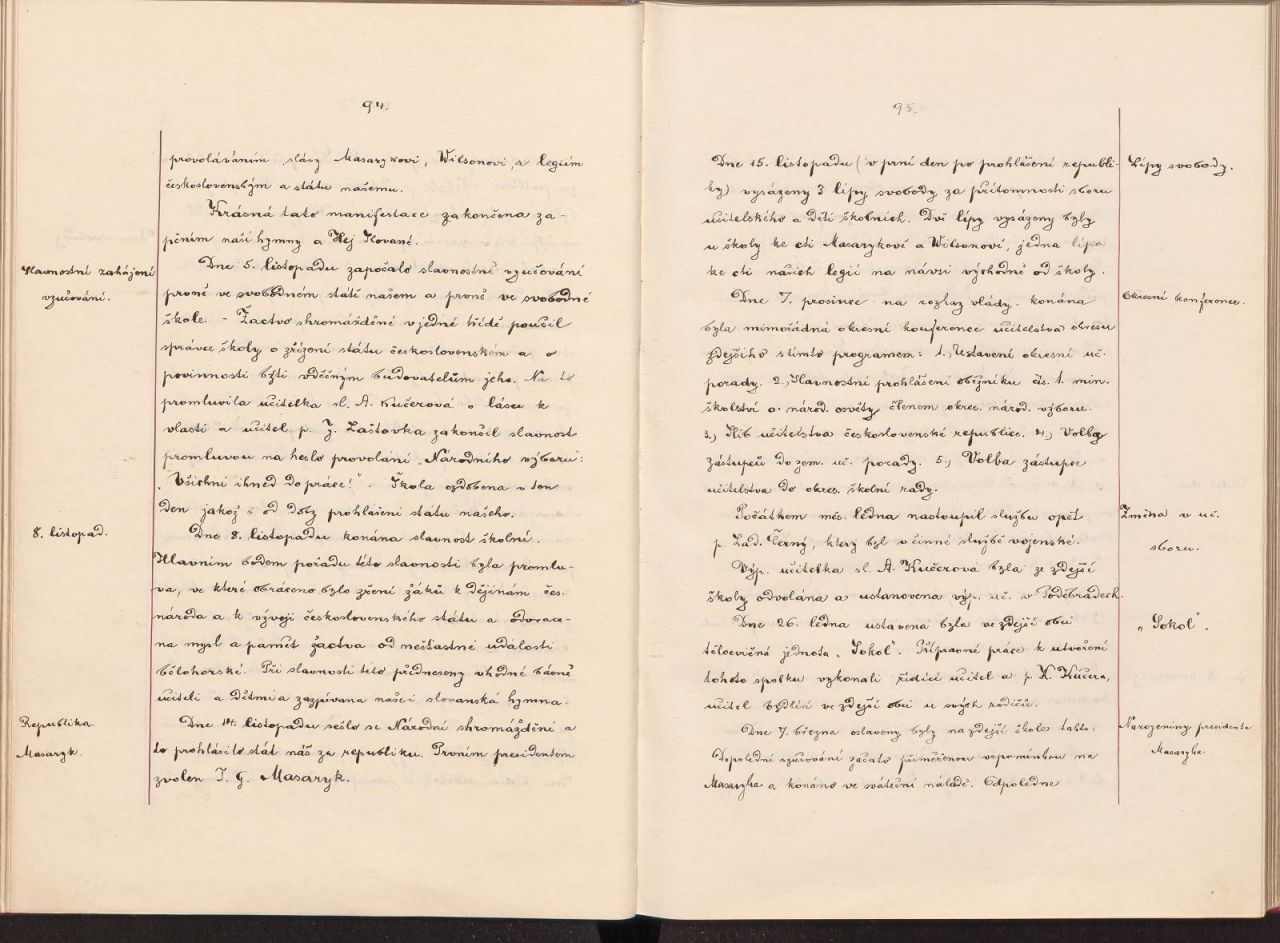 94.
provoláváním slávy Masarykovi, Wilsonovi, a legiím
československým a státu našemu.
Krásná tato manifestace zakončena za-
pěním naší hymny a Hej Slované.
Slavnostní zahájení
vyučování.
Dne 5. listopadu započalo slavnostně vyučování
prvně ve svobodném státě našem a prvně ve svobodné
škole. - Žactvo shromážděné v jedné třídě poučil
správce školy o zřízení státu československém a o
povinnosti býti vděčným budovatelům jeho. Na to
promluvila učitelka sl. A. Kučerová o lásce k
vlasti a učitel p. J. Laštovka zakončil slavnost
promluvou na heslo provolání „Národního výboru":
„Všichni ihned do práce!". Škola ozdobena v ten
den jakož i od doby prohlášení státu našeho.
8. listopad.
Dne 8. listopadu konána slavnost školní.
Hlavním bodem pořadu této slavnosti byla promlu-
va, ve které obráceno bylo zření žáků k dějinám čes.
národa a k vývoji československého státu a odvrá-
na mysl a paměť žactva od nešťastné události
bělohorské. Při slavnosti této předneseny vhodné básně
učiteli a dětmi a zazpívána naše i slovanská hymna.
Republika.
Masaryk.
Dne 14. listopadu sešlo se Národní shromáždění a
to prohlásilo stát náš za republiku. Prvním presidentem
zvolen T. G. Masaryk.
95.
Lípy svobody.
Dne 15. listopadu (v prní den po prohlášení republi-
ky) vysázeny 3 lípy svobody za přítomnosti sboru
učitelského a dětí školních. Dvě lípy vysázeny byly
u školy ke cti Masarykově a Wilsonově, jedna lípa
ke cti našich legií na návsi východně od školy.
Okresní konference.
Dne 7. prosince na rozkaz vlády konána
byla mimořádná okresní konference učitelstva okresu
zdejšího s tímto programem: 1.) Ustavení okresní uč.
porady. 2.) Slavnostní prohlášení oběžníku čís. 1. min.
školství a národ. osvěty členem okres. národ. výboru.
3.) Slib učitelstva československé republice. 4.) Volba
zástupců do zem. uč. porady. 5.) Volba zástupce
učitelstva do okres. školní rady.
Změna v uč.
sboru.
Počátkem měs. ledna nastoupil službu opět
p. Lad. Černý, který byl v činné službě vojenské.
Výp. učitelka sl. A. Kučerová byla ze zdejší
školy odvolána a ustanovena výp. uč. v Poděbradech.
„Sokol".
Dne 26. ledna ustavena byla ve zdejší obci
tělocvičná jednota „Sokol". Přípravné práce k utvoření
tohoto spolku vykonali řídící učitel a p. K. Kučera,
učitel bydlící ve zdejší obci u svých rodičů.
Narozeniny presidenta
Masaryka.
Dne 7. března oslaveny byly na zdejší škole takto:
Dopolední vyučování začato přiměřenou vzpomínkou na
Masaryka a konáno ve sváteční náladě. Odpoledne